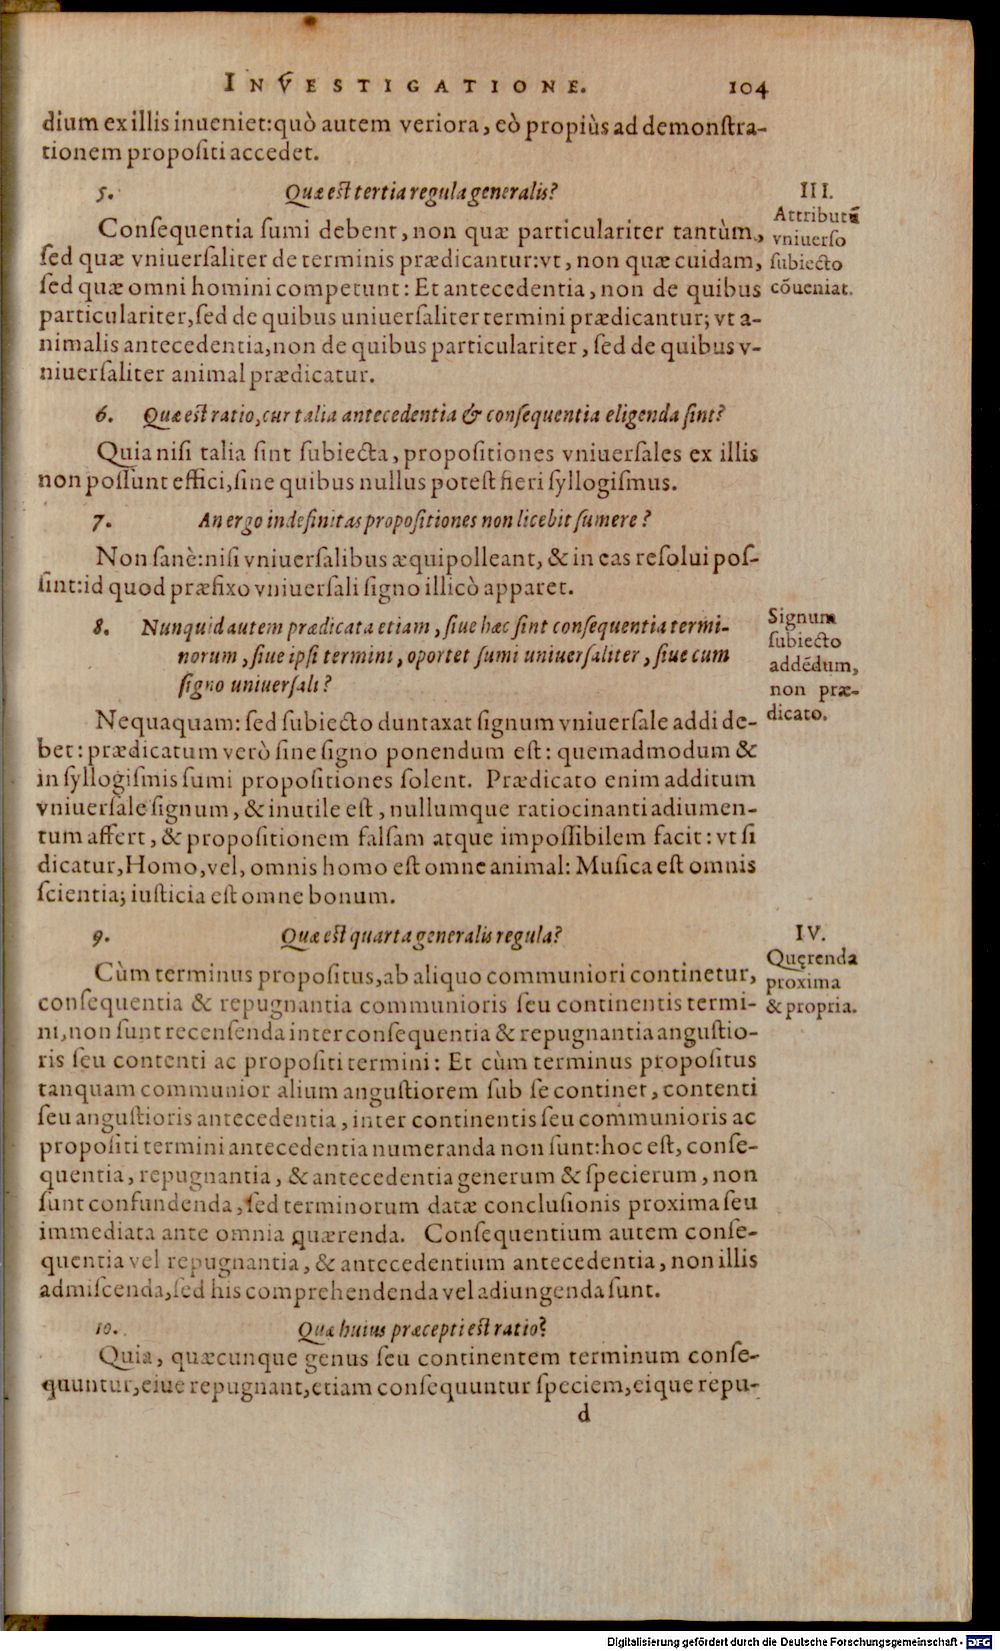 INVESTIGATIONE. 104
dium ex illis inueniet: quò autem veriora, eò propiùs ad demonſtra-
tionem propoſiti accedet.
5. Quæ eſt tertia regula generalis?
III.
Attributũ
vniuerſo
ſubiecto
cõueniat.
Conſequentia ſumi debent, non quæ particulariter tantùm,
ſed quæ vniuerſaliter de terminis prædicantur: vt, non quæ cuidam,
ſed quæ omni homini competunt: Et antecedentia, non de quibus
particulariter, ſed de quibus uniuerſaliter termini prædicantur; vt a-
nimalis antecedentia, non de quibus particulariter, ſed de quibus v-
niuerſaliter animal prædicatur.
6. Quæ eſt ratio, cur talia antecedentia & conſequentia eligenda ſint?
Quia niſi talia ſint ſubiecta, propoſitiones vniuerſales ex illis
non poſſunt effici, ſine quibus nullus poteſt fieri ſyllogiſmus.
7. An ergo indefinitas propoſitiones non licebit ſumere?
Non ſanè: niſi vniuerſalibus æquipolleant, & in eas reſolui poſ-
ſint: id quod præfixo vniuerſali ſigno illicò apparet.
8. Nunquid autem prædicata etiam, ſiue hæc ſint conſequentia termi-
norum, ſiue ipſi termini, oportet ſumi uniuerſaliter, ſiue cum
ſigno uniuerſali?
Signum
ſubiecto
addẽdum,
non præ-
dicato.
Nequaquam: ſed ſubiecto duntaxat ſignum vniuerſale addi de-
bet: prædicatum verò ſine ſigno ponendum eſt: quemadmodum &
in ſyllogiſmis ſumi propoſitiones ſolent. Prædicato enim additum
vniuerſale ſignum, & inutile eſt, nullumque ratiocinanti adiumen-
tum affert, & propoſitionem falſam atque impoſſibilem facit: vt ſi
dicatur, Homo, vel, omnis homo eſt omne animal: Muſica eſt omnis
ſcientia; iuſticia eſt omne bonum.
9. Quæ eſt quarta generalis regula?
IV.
Quęrenda
proxima
& propria.
Cùm terminus propoſitus, ab aliquo communiori continetur,
conſequentia & repugnantia communioris ſeu continentis termi-
ni, non ſunt recenſenda inter conſequentia & repugnantia anguſtio-
ris ſeu contenti ac propoſiti termini: Et cùm terminus propoſitus
tanquam communior alium anguſtiorem ſub ſe continet, contenti
ſeu anguſtioris antecedentia, inter continentis ſeu communioris ac
propoſiti termini antecedentia numeranda non ſunt: hoc eſt, conſe-
quentia, repugnantia, & antecedentia generum & ſpecierum, non
ſunt confundenda, ſed terminorum datæ concluſionis proxima ſeu
immediata ante omnia quærenda. Conſequentium autem conſe-
quentia vel repugnantia, & antecedentium antecedentia, non illis
admiſcenda, ſed his comprehendenda vel adiungenda ſunt.
10. Quæ huius præcepti eſt ratio?
Quia, quæcunque genus ſeu continentem terminum conſe-
quuntur, eiue repugnant, etiam conſequuntur ſpeciem, eique repu-
d
Digitalisierung gefördert durch die Deutsche Forschungsgemeinschaft - DFG